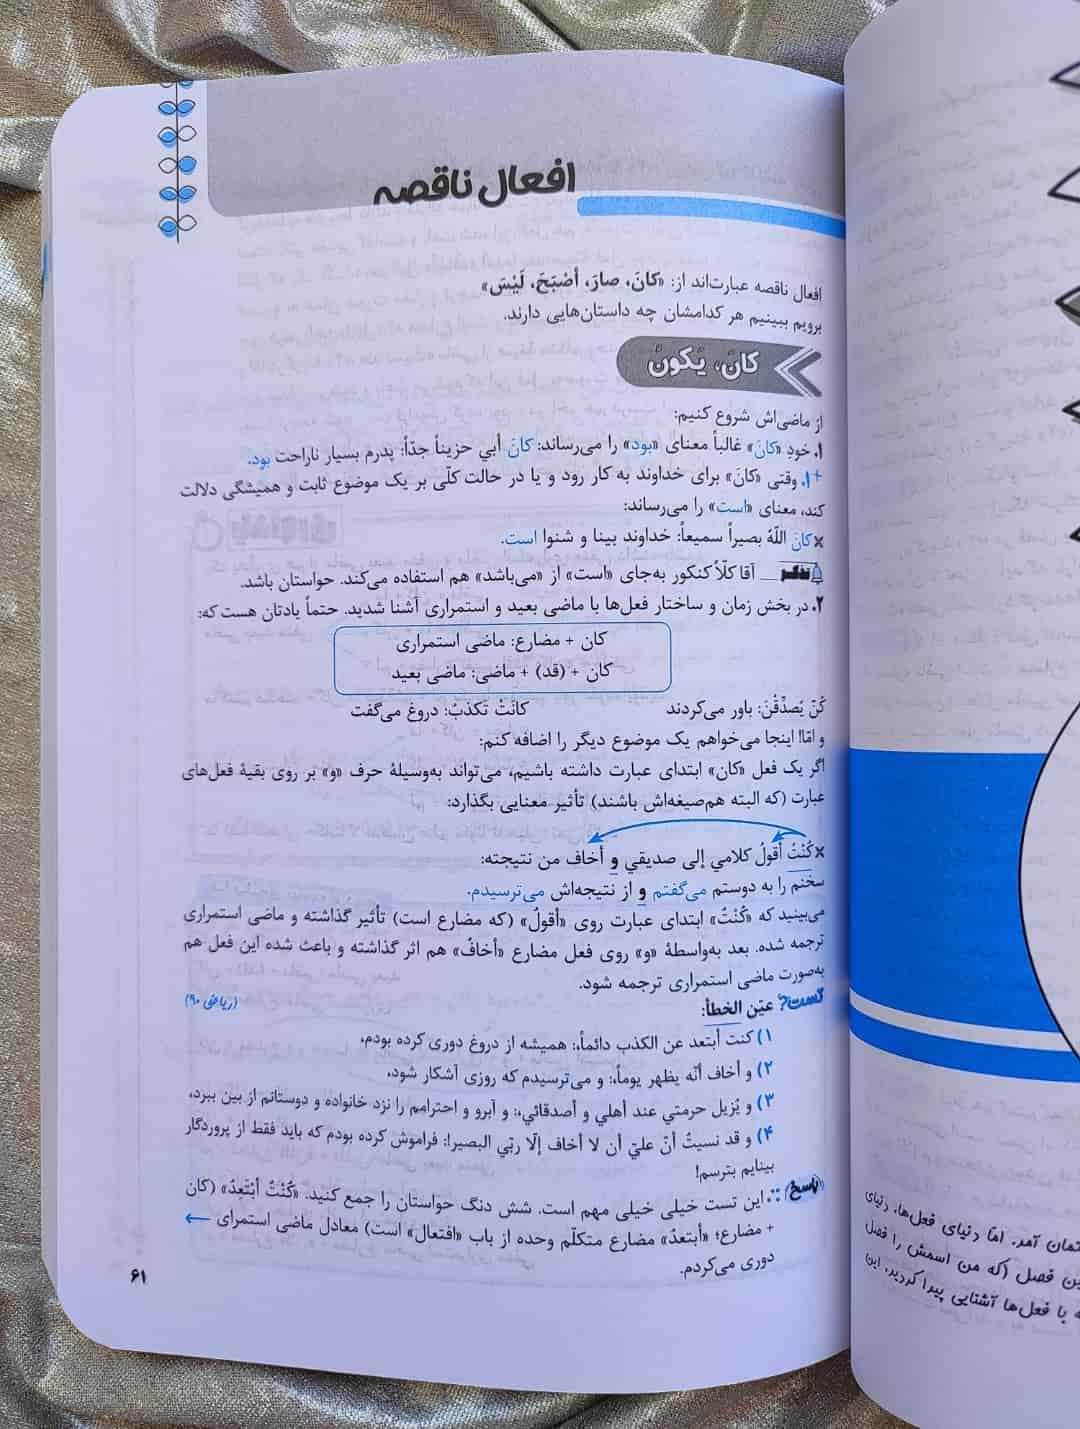 افعال ناقصه
افعال ناقصه عبارت‌اند از: «کانَ، صارَ، أصْبَحَ، لَیْسَ»
برویم ببینیم هر کدامشان چه داستان‌هایی دارند.
کانَ، یَکونُ
از ماضی‌اش شروع کنیم:
۱. خودِ «کانَ» غالباً معنای «بود» را می‌رساند: کانَ أبي حزیناً جدّاً: پدرم بسیار ناراحت بود.
۱+. وقتی «کانَ» برای خداوند به کار رود و یا در حالت کلّی بر یک موضوع ثابت و همیشگی دلالت
کند، معنای «است» را می‌رساند:
× کانَ اللّهُ بصیراً سمیعاً: خداوند بینا و شنوا است.
تذکر آقا کلّاً کنکور به‌جای «است» از «می‌باشد» هم استفاده می‌کند. حواستان باشد.
۲. در بخش زمان و ساختار فعل‌ها با ماضی بعید و استمراری آشنا شدید. حتماً یادتان هست که:
کان + مضارع: ماضی استمراری
کان + (قد) + ماضی: ماضی بعید
کُنّ یُصدِّقْنَ: باور می‌کردند کانَتْ تَکذبُ: دروغ می‌گفت
و امّا! اینجا می‌خواهم یک موضوع دیگر را اضافه کنم:
اگر یک فعل «کان» ابتدای عبارت داشته باشیم، می‌تواند به‌وسیلهٔ حرف «و» بر روی بقیهٔ فعل‌های
عبارت (که البته هم‌صیغه‌اش باشند) تأثیر معنایی بگذارد:
× کُنْتُ أقولُ کلامي إلی صدیقي و أخاف من نتیجته:
سخنم را به دوستم می‌گفتم و از نتیجه‌اش می‌ترسیدم.
می‌بینید که «کُنْتُ» ابتدای عبارت روی «أقولُ» (که مضارع است) تأثیر گذاشته و ماضی استمراری
ترجمه شده. بعد به‌واسطهٔ «و» روی فعل مضارع «أخافُ» هم اثر گذاشته و باعث شده این فعل هم
به‌صورت ماضی استمراری ترجمه شود.
تست؟ عیّن الخطأ: (ریاضی ۹۰)
۱) کنت أبتعد عن الکذب دائماً،: همیشه از دروغ دوری کرده بودم،
۲) و أخاف أنّه یظهر یوماً،: و می‌ترسیدم که روزی آشکار شود،
۳) و یُزیل حرمتي عند أهلي و أصدقائي،: و آبرو و احترامم را نزد خانواده و دوستانم از بین ببرد،
۴) و قد نسیتُ أنّ عليّ أن لا أخاف إلّا ربّي البصیر!: فراموش کرده بودم که باید فقط از پروردگار
بینایم بترسم!
پاسخ این تست خیلی خیلی مهم است. شش دنگ حواستان را جمع کنید. «کُنْتُ أبْتَعِدُ» (کان
+ مضارع؛ «أبتعدُ» مضارع متکلّم وحده از باب «افتعال» است) معادل ماضی استمرای ←
دوری می‌کردم.
۶۱